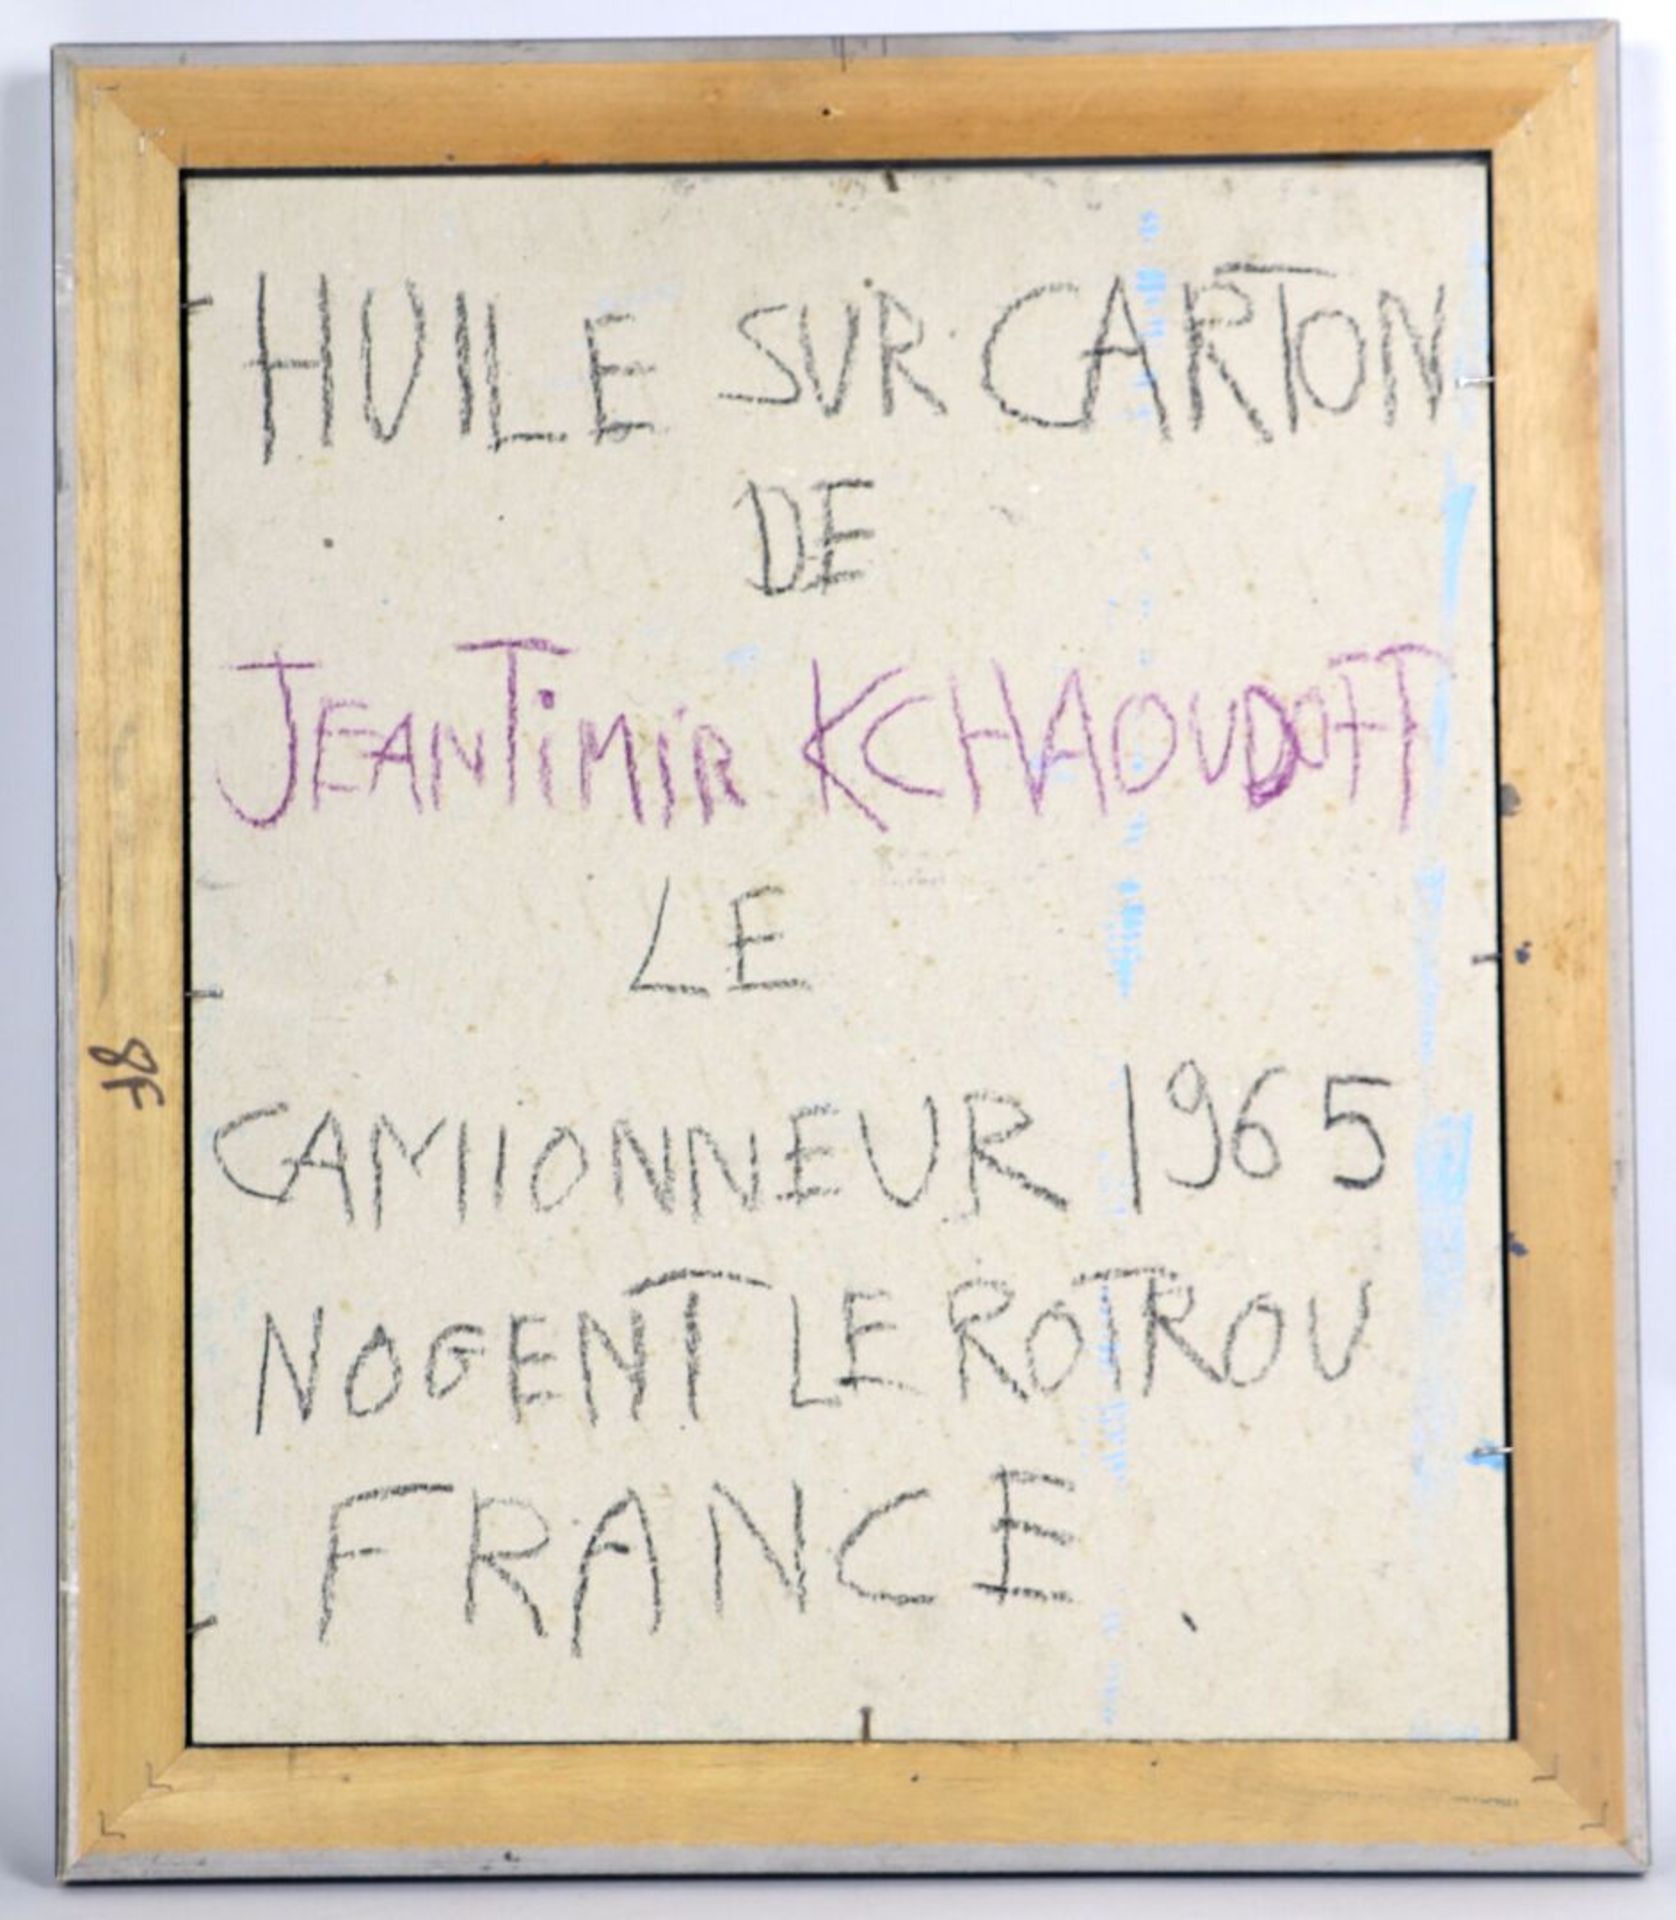 HUILE SUR CARTON
DE
JEANTiMiR KCHAOUDOFF
LE
CAMiIONNEUR 1965
NOGENT LE ROTROU
FRANCE.
8F